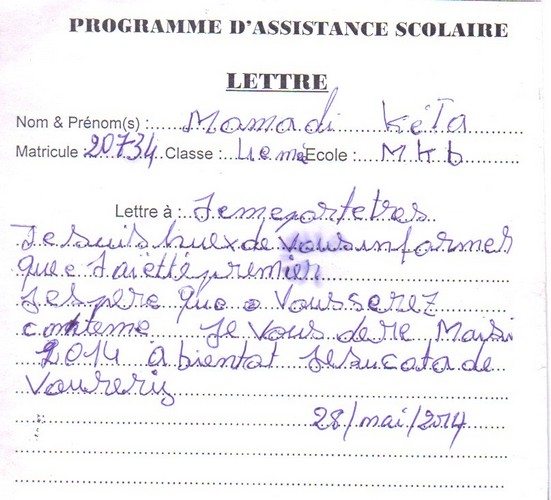 PROGRAMME D'ASSISTANCE SCOLAIRE
LETTRE
Nom & Prénom(s) : Mamadi KéïTa
Matricule : 20734 Classe : 4eme Ecole : MKb
Lettre à : Jemeportetres
Jesuishuexde vousinformer
que Jaiettépremier
Jespere que vousserez
conteme Je vous dere Maisi
2014 à bientat Jesucatade
Voureriz
28/mai/2014